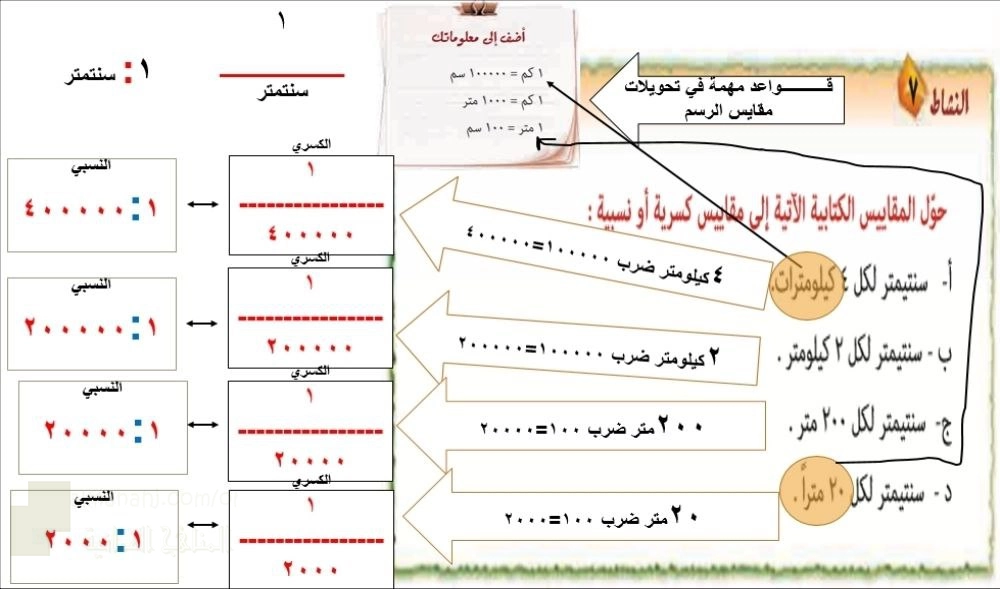 النشاط ٧
قـــــــواعد مهمة في تحويلات
مقايس الرسم
أضف إلى معلوماتك
١ كم = ١٠٠٠٠٠ سم
١ كم = ١٠٠٠ متر
١ متر = ١٠٠ سم
١
سنتمتر
١ : سنتمتر
حوّل المقاييس الكتابية الآتية إلى مقاييس كسرية أو نسبية :
أ- سنتيمتر لكل ٤ كيلومترات.
٤ كيلومتر ضرب ١٠٠٠٠٠=٤٠٠٠٠٠
الكسري
١
٤٠٠٠٠٠
النسبي
١ : ٤٠٠٠٠٠
ب - سنتيمتر لكل ٢ كيلومتر .
٢ كيلومتر ضرب ١٠٠٠٠٠=٢٠٠٠٠٠
الكسري
١
٢٠٠٠٠٠
النسبي
١ : ٢٠٠٠٠٠
ج- سنتيمتر لكل ٢٠٠ متر .
٢٠٠ متر ضرب ١٠٠=٢٠٠٠٠
الكسري
١
٢٠٠٠٠
النسبي
١ : ٢٠٠٠٠
د - سنتيمتر لكل ٢٠ متراً .
٢٠ متر ضرب ١٠٠=٢٠٠٠
الكسري
١
٢٠٠٠
النسبي
١ : ٢٠٠٠